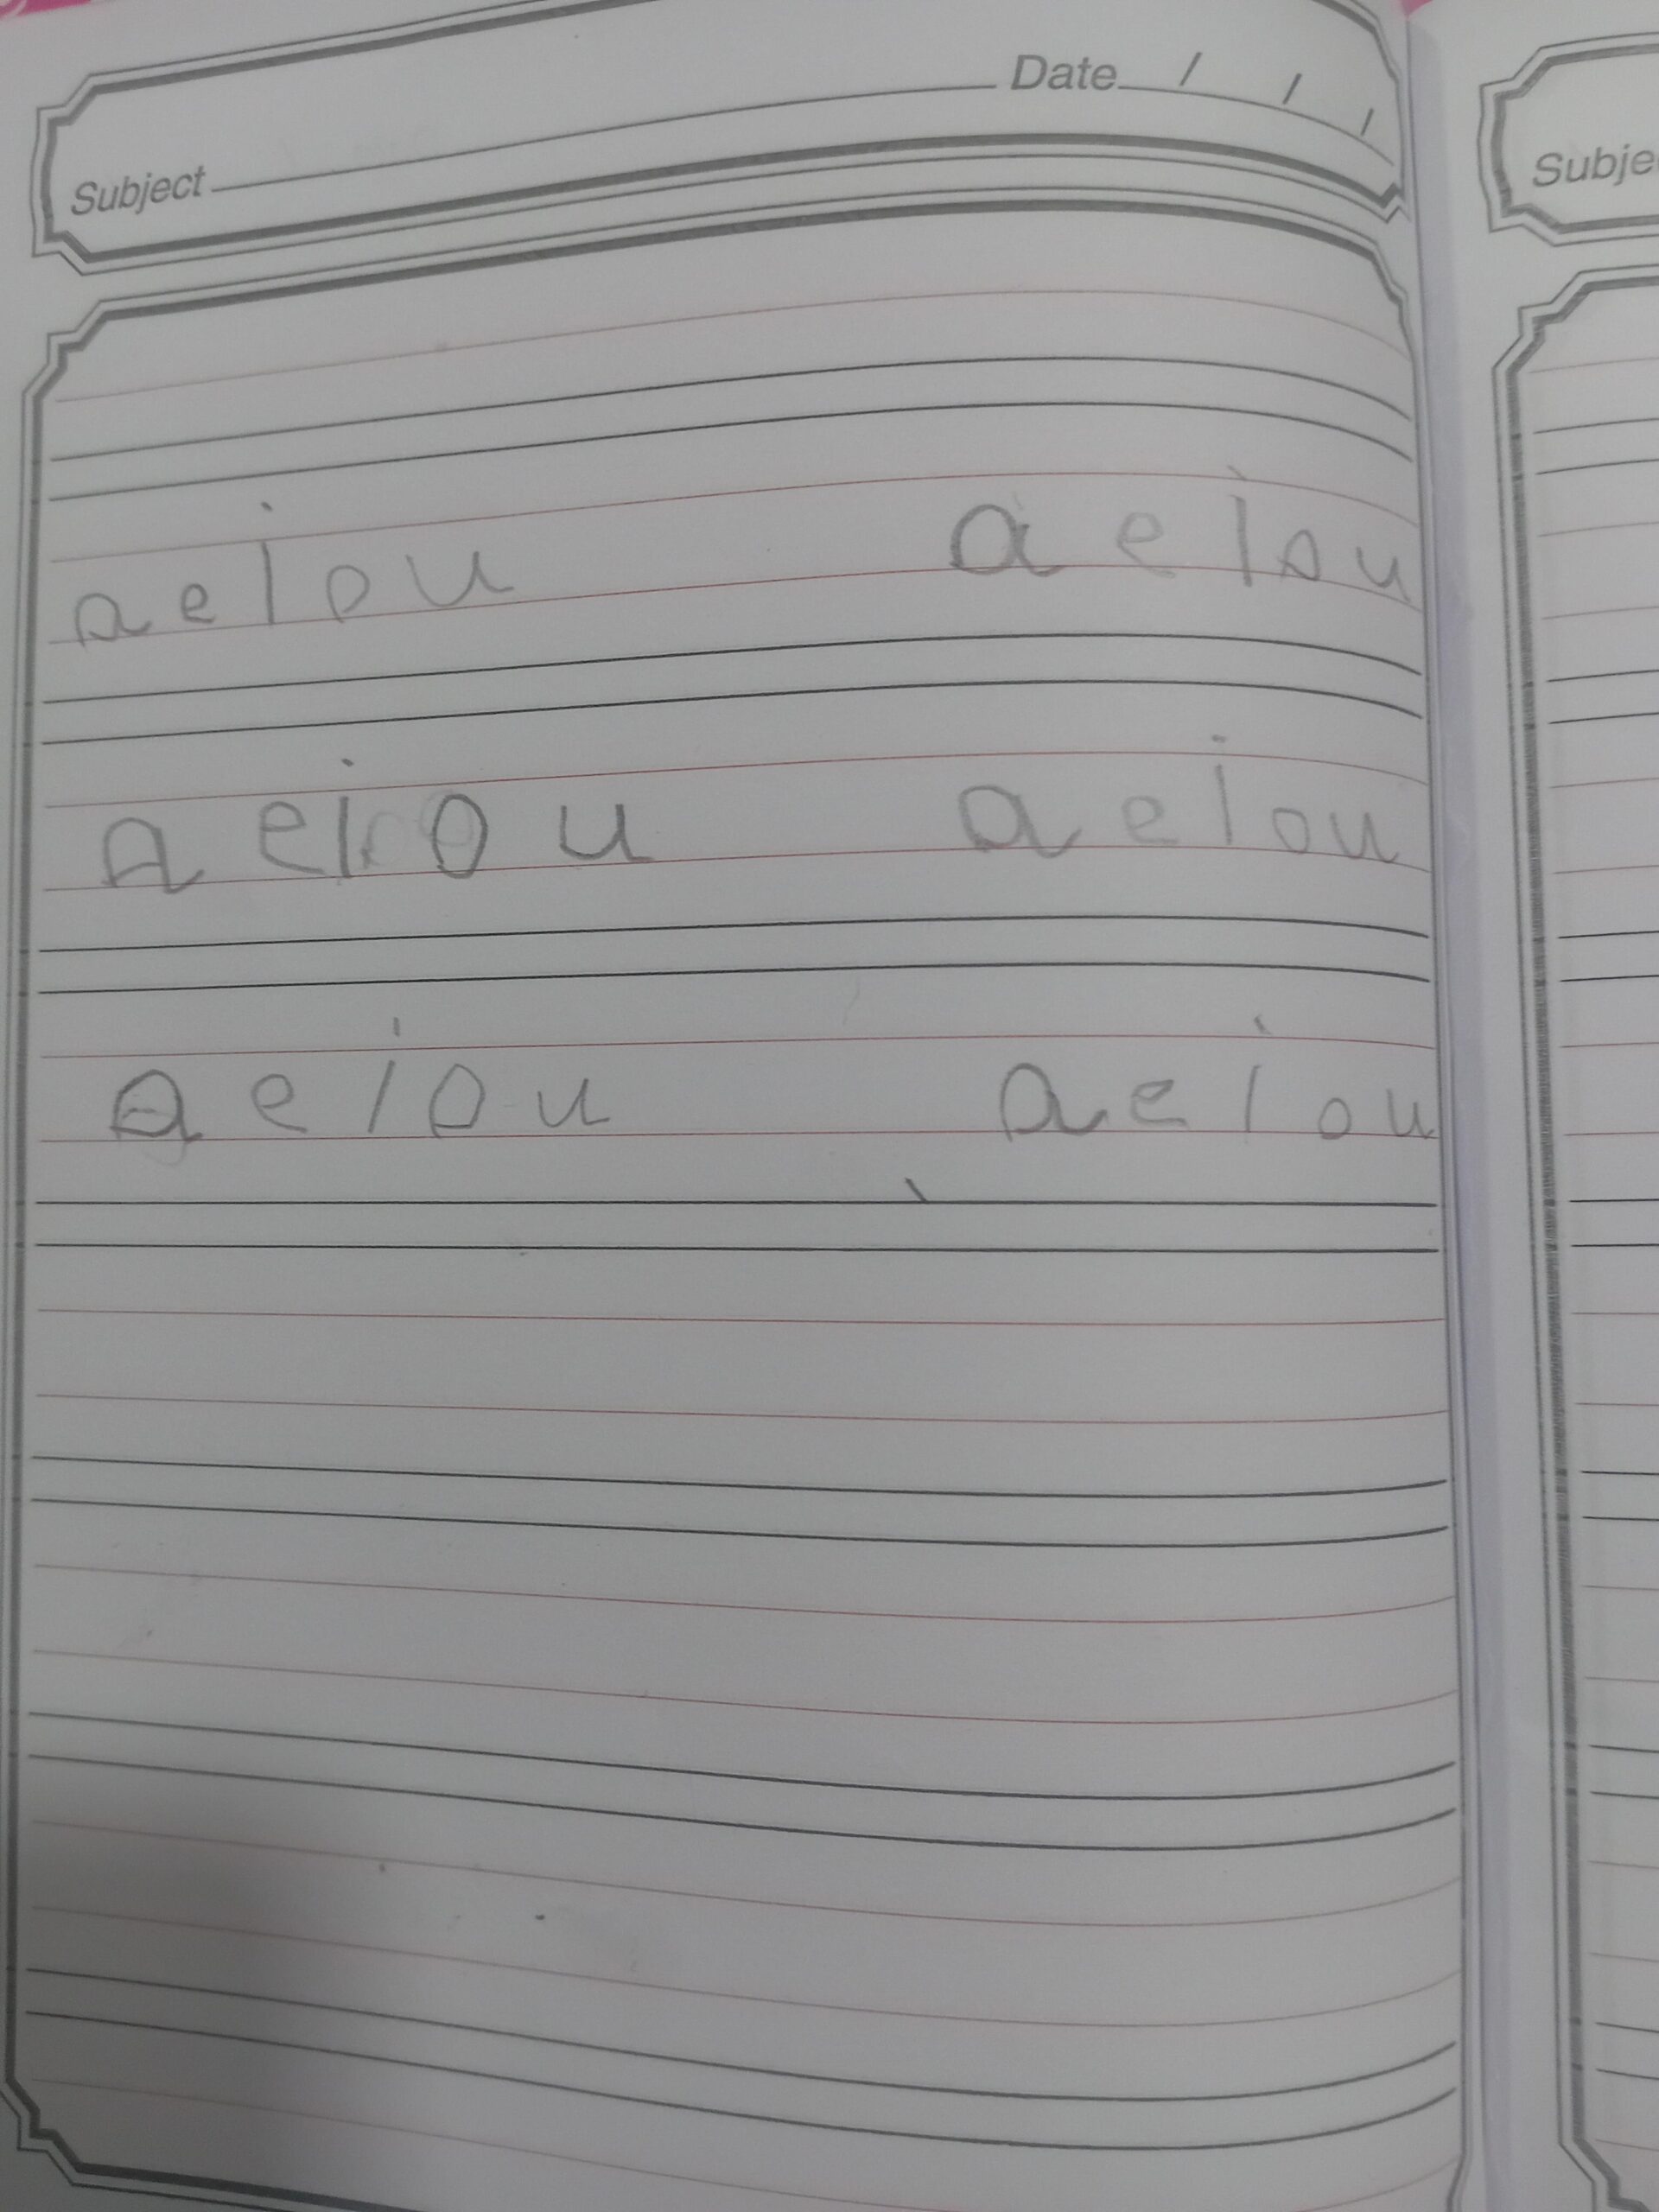 Date / / /
Subject
Subje
a e i o u a e i o u
a e i o u a e i o u
a e i o u a e i o u